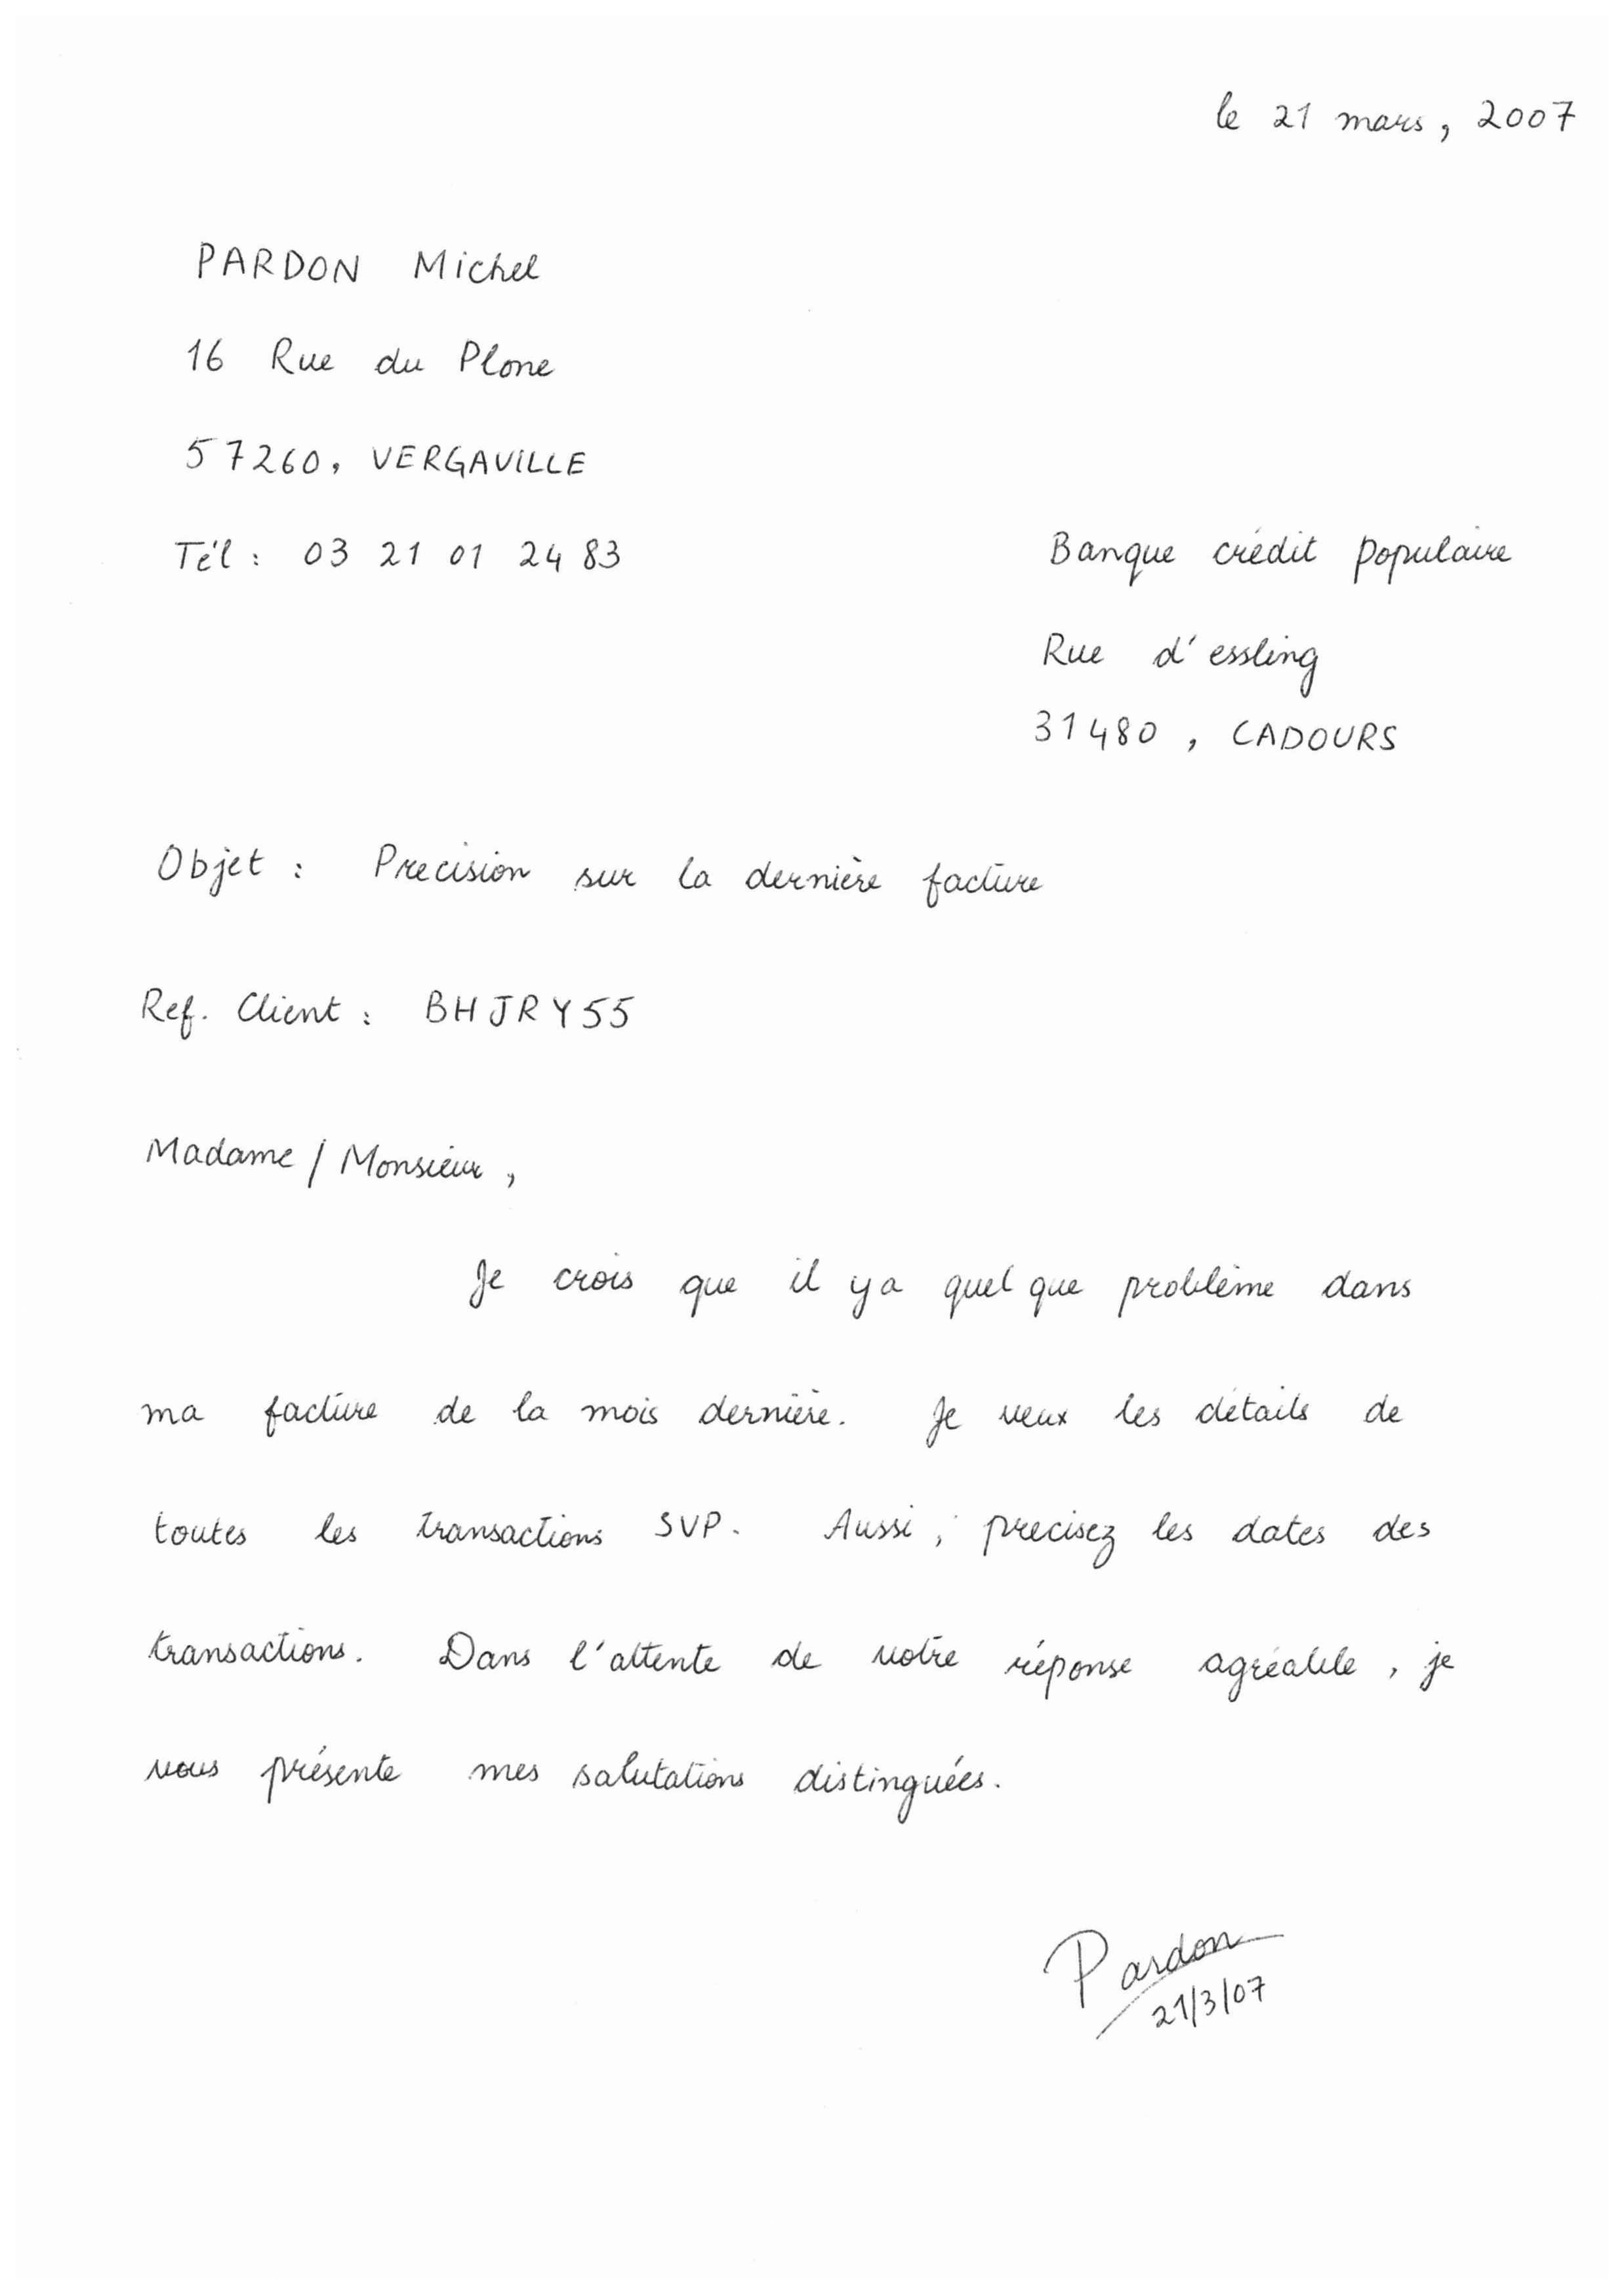 le 21 mars, 2007
PARDON Michel
16 Rue du Plone
57260, VERGAVILLE
Tél : 03 21 01 24 83
Banque crédit populaire
Rue d'essling
31480, CADOURS
Objet : Precision sur la dernière facture
Ref. Client : BHJRY55
Madame / Monsieur,
Je crois que il ya quelque problème dans
ma facture de la mois dernière. Je veux les détails de
toutes les transactions SVP. Aussi, precisez les dates des
transactions. Dans l'attente de votre réponse agréable, je
vous présente mes salutations distinguées.
Pardon
21/3/07